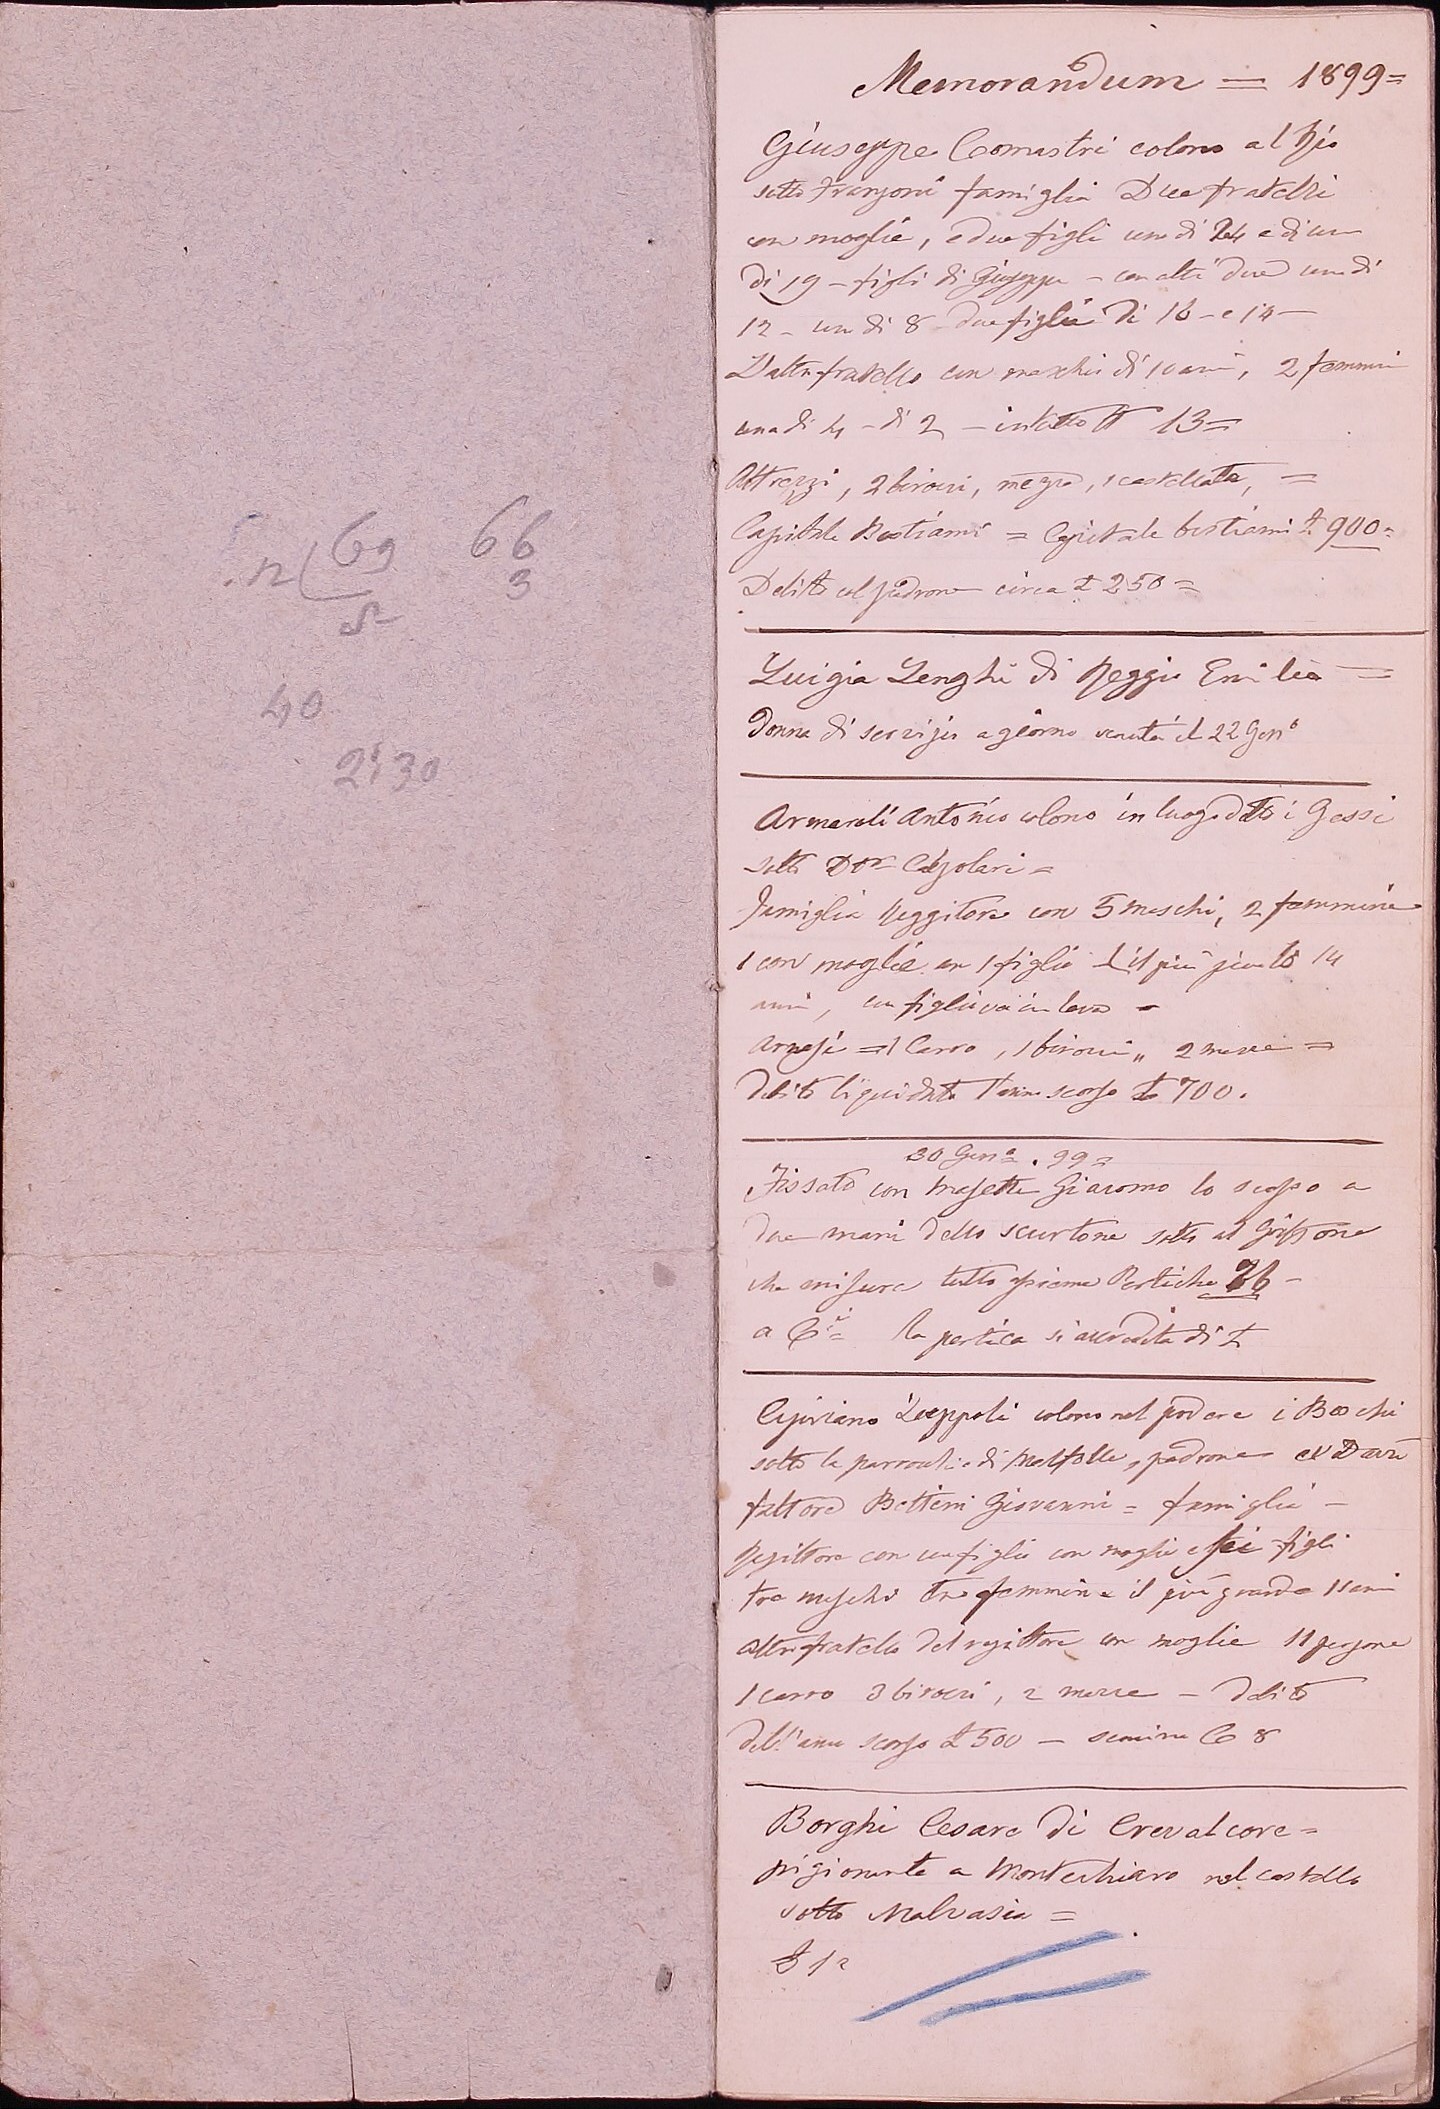 n 69 66
3
5
40
2:30
Memorandum = 1899=
Giuseppe Comastri colono al Rio
sotto Franzoni famiglia Due fratelli
con moglie, e due figli uno di 24 e di un
di 19 – figli di Giuseppe – con altri due uno di
12 – un di 8 – due figlie di 16 – e 14 –
L'altro fratello con maschio di 10 anni, 2 femmine
una di 4 – di 2 – in tutto 13=
Attrezzi, 2 birozzi, 1 castellata, =
Capitale Bestiami = Capitale bestiami £ 900=
Debito col padrone circa £ 250=
Luigia Lenghi di Reggio Emilia =
Donna di servizio a giorno venuta il 22 Genº
Armaroli Antonio colono in luogo detto i Gessi
sotto Dor =
Famiglia Reggitore con 5 maschi, 2 femmine
1 con moglie con 1 figlio il più 14
anni, un figlio va in leva =
Arnesi = 1 Carro, 1 birozzi „ 2 mezze =
debito liquidato l'anno scorso £ 700.
30 Genº . 99=
Fissato con Masetti Giacomo lo scasso a
due mani dello scurtone sotto al Grissone
che misura tutto assieme Pertiche 76 –
a la pertica si accredita di £
Cipriano Zuppoli colono nel podere i Boschi
sotto la parrocchia di Malfolle, padrone
fattore Bettini Giovanni = famiglia –
Regittore con un figlio con moglie e sei figli
tre maschi tre femmine il più grande 11 anni
altro fratello del regittore con moglie 11 persone
1 carro 3 birozzi, 2 mezze – debito
dell'anno scorso £ 500 – semina C 8
Borghi Cesare di Crevalcore=
pigionante a Montechiaro nel castello
sotto Malvasia =